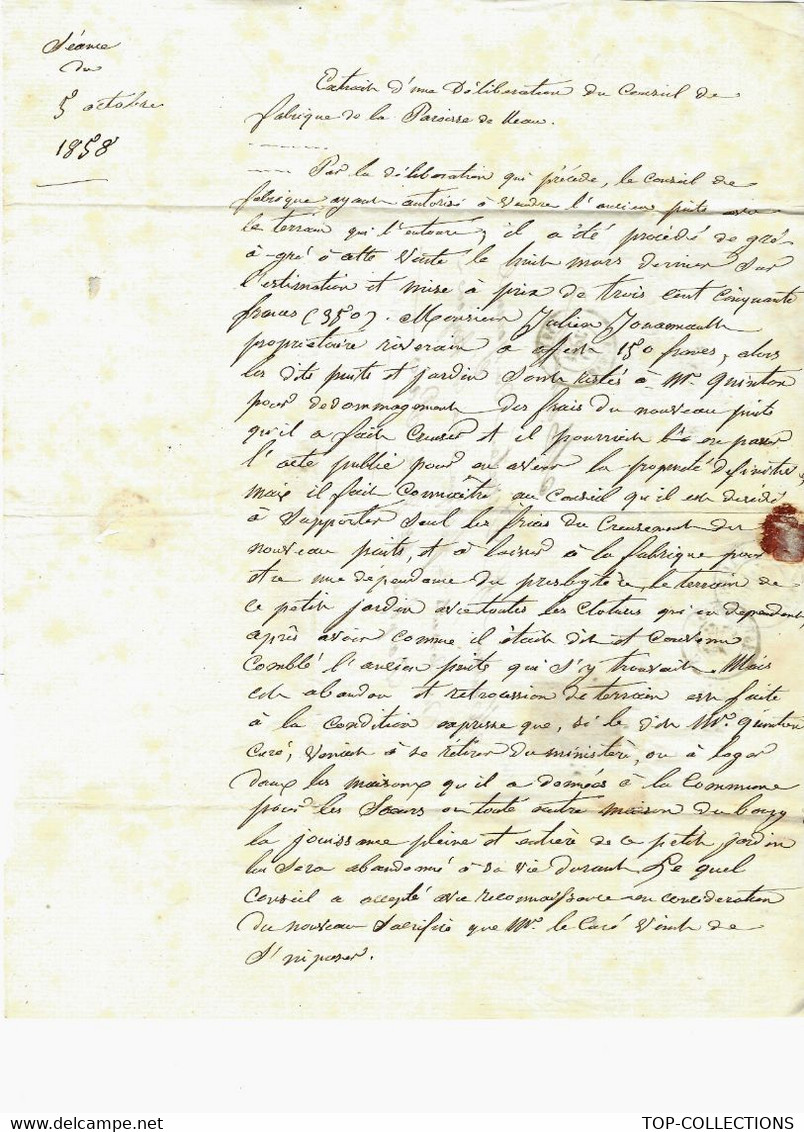 Séance
du
5 octobre
1858
Extrait d'une Délibération du Conseil de
fabrique de la Paroisse de Neau.
Par la délibération qui précède, le Conseil de
fabrique ayant autorisé à vendre l'ancien puits avec
le terrain qui l'entoure, il a été procédé de gré-
à-gré à cette vente le huit mars dernier sur
l'estimation et mise à prix de trois cent cinquante
francs (350). Monsieur Julien
propriétaire riverain a offert 150 francs, alors
les dits puits et jardin sont restés à Mr. Quinton
pour dédommagement des frais du nouveau puits
qu'il a fait creuser et il pourrait en passer
l'acte public pour en avoir la propriété définitive,
mais il fait connaître au Conseil qu'il est décidé
à supporter seul les frais du creusement du
nouveau puits, et à laisser à la fabrique pour
être une dépendance du presbytère, le terrain de
ce petit jardin avec toutes les clotures qui en dépendent,
après avoir comme il était dit et convenu
comblé l'ancien puits qui s'y trouvait. Mais
cet abandon et rétrocession de terrain est faite
à la condition expresse que, si le dit Mr. Quinton
Curé, venait à se retirer du ministère, ou à loger
dans les maisons qu'il a données à la Commune
pour les Soeurs ou toute autre maison du bourg
la jouissance pleine et entière de ce petit jardin
lui sera abandonné à sa vie durant. Le quel
Conseil a accepté avec reconnaissance en considération
du nouveau sacrifice que Mr. le Curé vient de
s'imposer.
TOP-COLLECTIONS